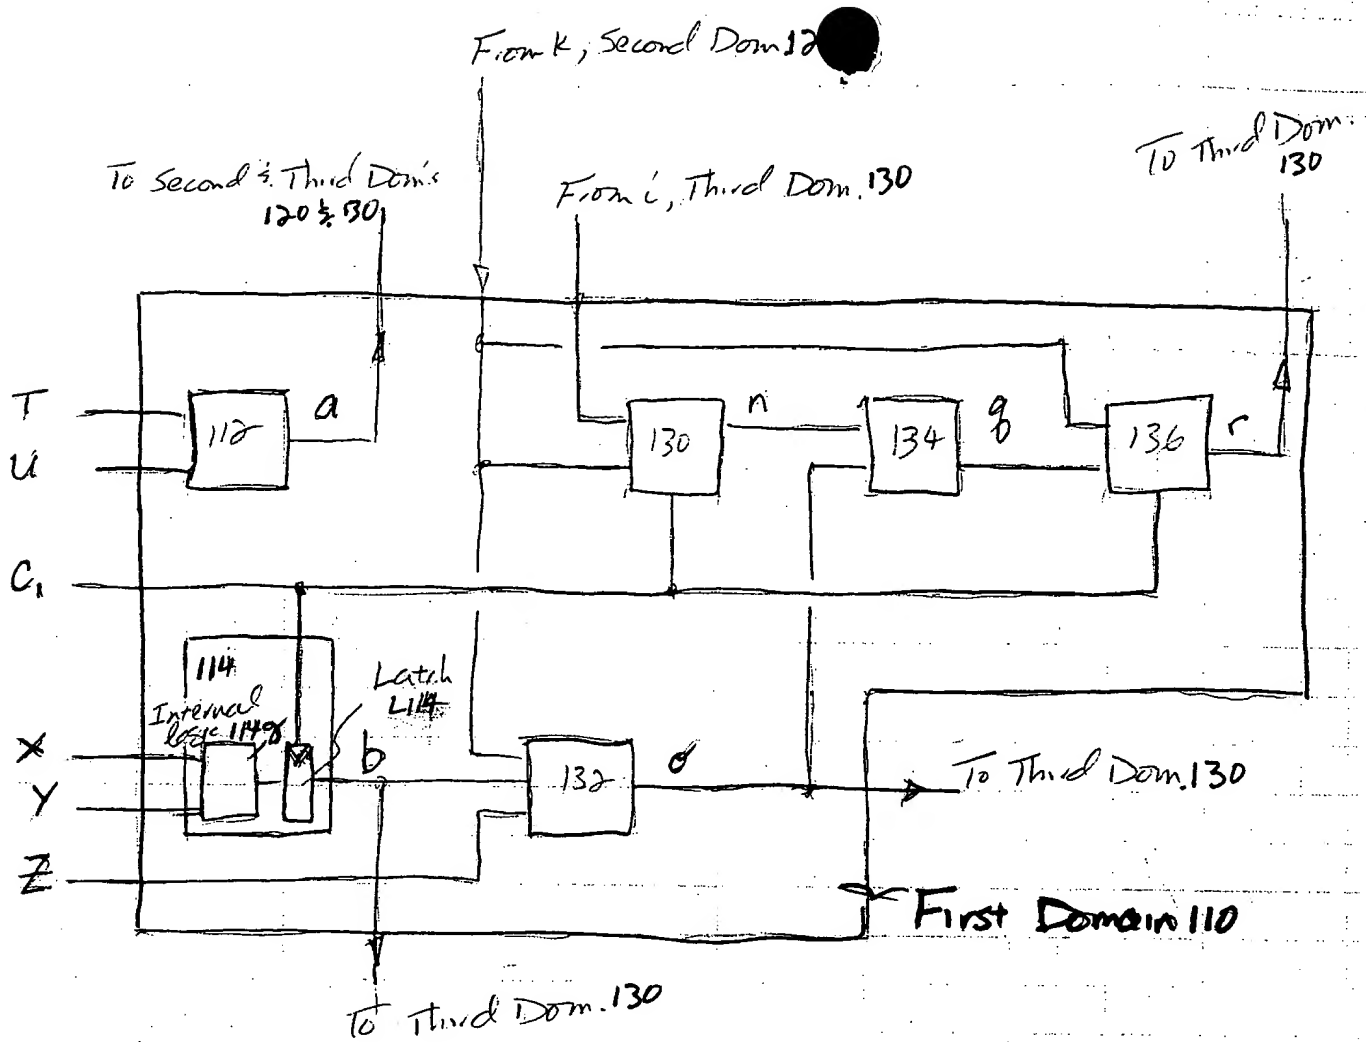 From k, Second Dom 12
To Third Dom.
130
To Second & Third Dom's
120 & 130
From i, Third Dom. 130
T
112
a
130
n
134
q
136
r
U
C1
114
Internal
logic 114g
Latch
L114
X
b
132
o
To Third Dom. 130
Y
Z
First Domain 110
To Third Dom. 130